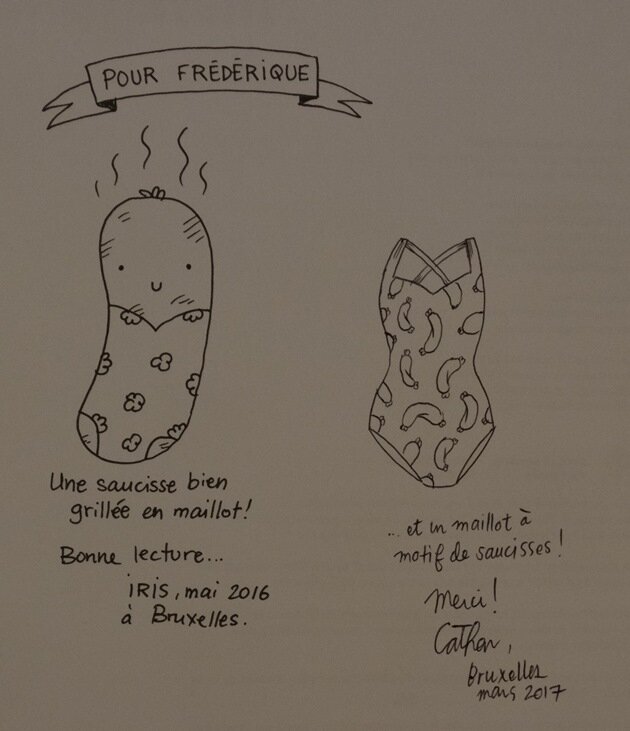 POUR FRÉDÉRIQUE
Une saucisse bien
grillée en maillot!
Bonne lecture...
IRIS, mai 2016
à Bruxelles.
... et un maillot à
motif de saucisses!
Merci!
Cathon,
Bruxelles
mars 2017